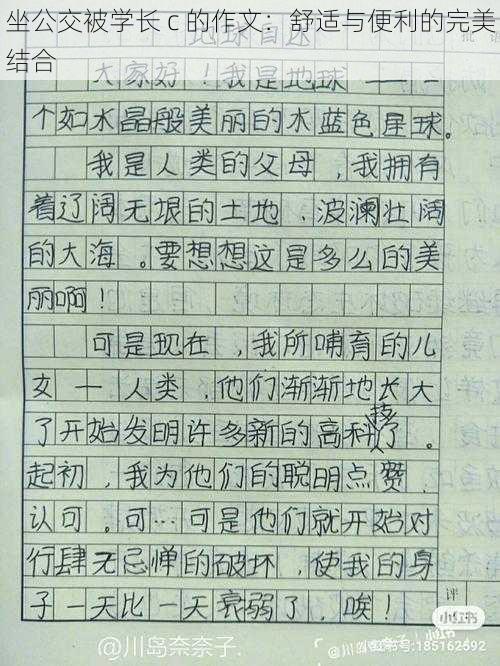 坐公交被学长 c 的作文：舒适与便利的完美
结合
地球自述
大家好！我是地球———
个如水晶般美丽的水蓝色星球。
我是人类的父母，我拥有
着辽阔无垠的土地、波澜壮阔
的大海。要想想这是多么的美
丽啊！
可是现在，我所哺育的儿
女一人类，他们渐渐地长大
了开始发明许多新的高科技了。
起初，我为他们的聪明点赞，
认可。可…可是他们就开始对
行肆无忌惮的破坏，使我的身
子一天比一天衰弱了，唉！
评
小红书
@川岛奈奈子.
@川岛奈奈子
小红书号:185162592